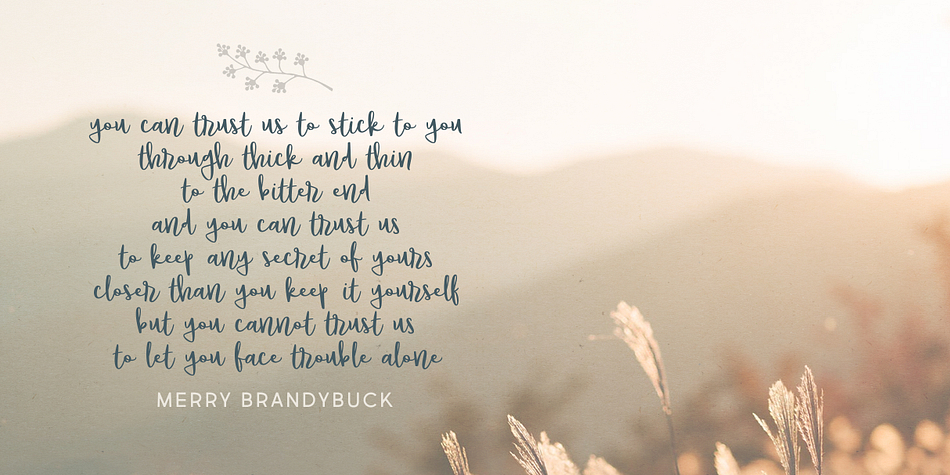 you can trust us to stick to you
through thick and thin
to the bitter end
and you can trust us
to keep any secret of yours
closer than you keep it yourself
but you cannot trust us
to let you face trouble alone
MERRY BRANDYBUCK